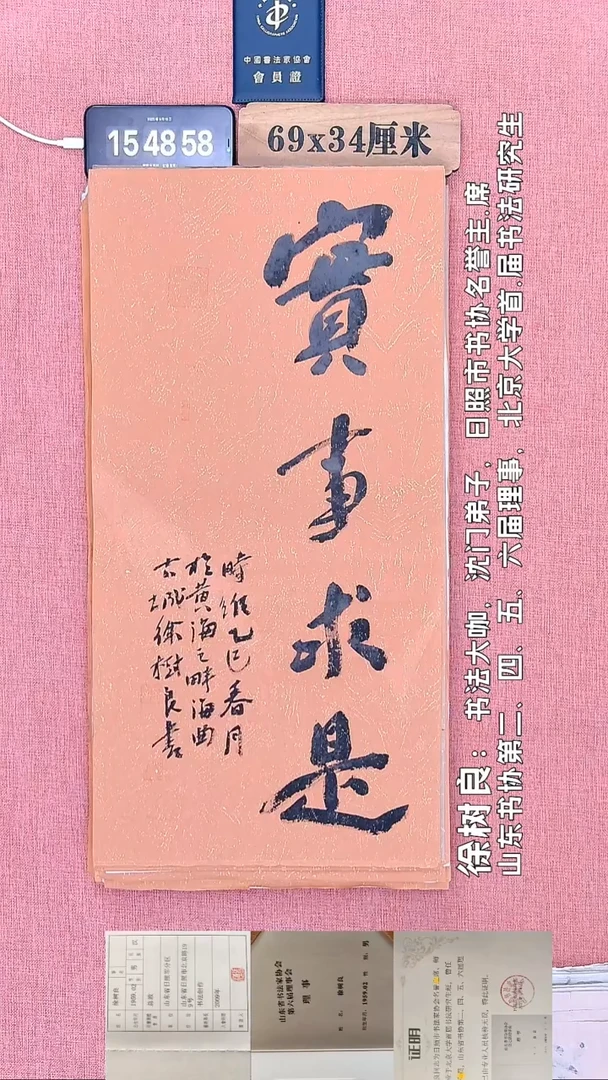 中國書法家協會
會員證
15 48 58
69x34厘米
實事求是
時維乙巳春月
於黄海之畔海曲
古城徐樹良書
徐树良：书法大咖，沈门弟子，日照市书协名誉主.席
山东书协第二、四、五、六届理事，北京大学首.届书法研究生
徐树良
1959.02
男
汉
2009年
山东省书法家协会
第六届理事会
理事
徐树良
男
1959.02
证明